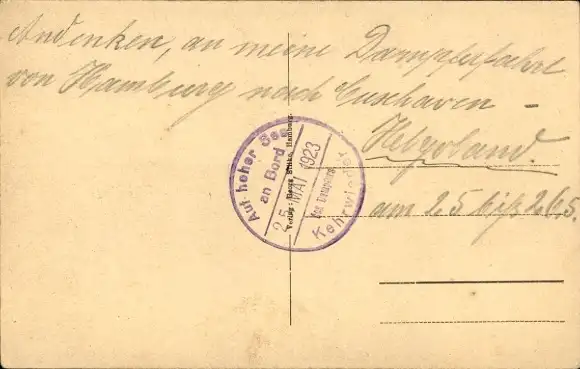 Andenken, an meine Dampferfahrt
von Hamburg nach Cuxhaven -
Helgoland.
am 25 biß 26.5.
Auf hoher See
an Bord
25 MAI 1923
des Dampfers
Kehrwieder
Verlag: Georg Stilke, Hamburg.